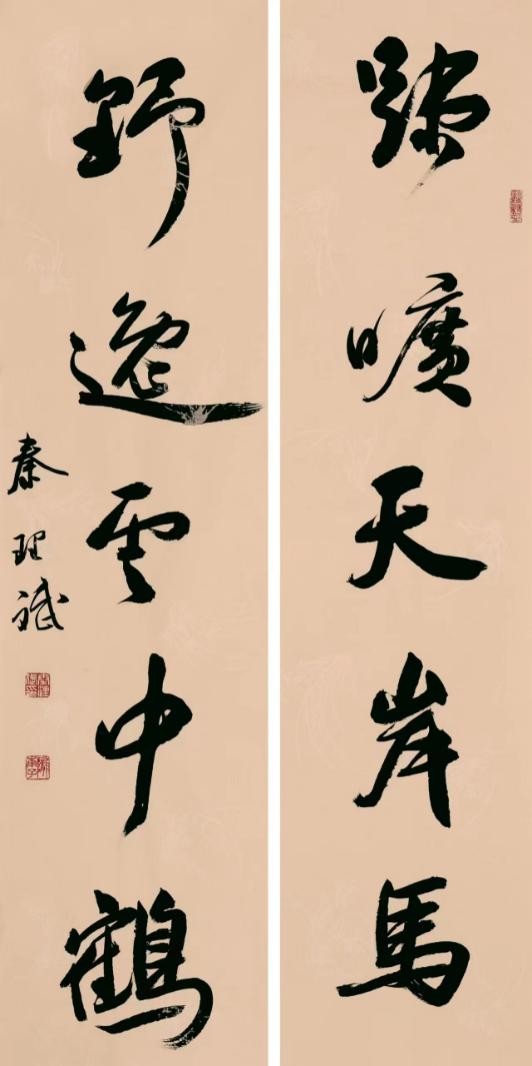 踈曠天岸馬
舒逸雲中鶴
秦理斌